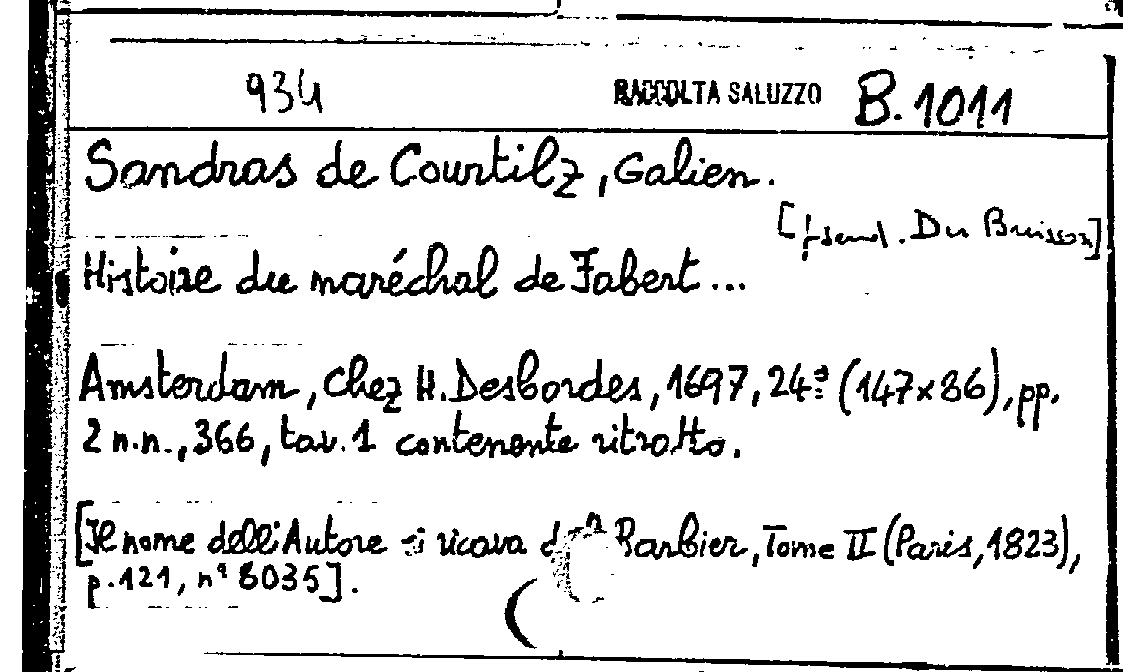 934 RACCOLTA SALUZZO B. 1011
Sandras de Courtilz, Galien.
[pseud. Du Buisson]
Histoire du maréchal de Fabert...
Amsterdam, chez H. Desbordes, 1697, 24º (147x86), pp.
2 n.n., 366, tav. 1 contenente ritratto.
[Il nome dell'Autore si ricava Barbier, Tome II (Paris, 1823),
p. 121, nº 8035].